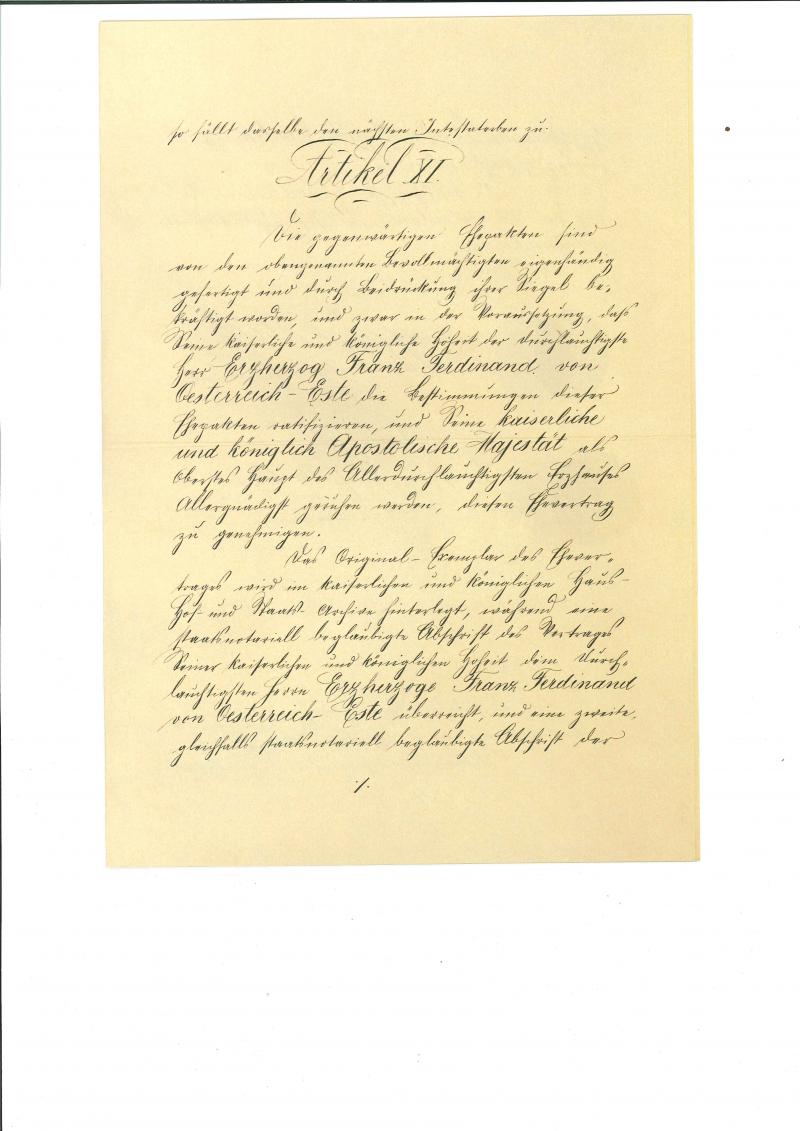 so fällt dasselbe den nächsten Intestaterben zu.
Artikel XI.
Die gegenwärtigen Ehepakten sind
von den obengenannten Bevollmächtigten eigenhändig
gefertigt und durch Beidrückung ihrer Siegel be-
kräftigt worden, und zwar in der Voraussetzung, daß
Seine kaiserliche und königliche Hoheit der durchlauchtigste
Herr Erzherzog Franz Ferdinand von
Oesterreich-Este die Bestimmungen dieser
Ehepakten ratifizieren, und Seine kaiserliche
und königlich Apostolische Majestät als
oberstes Haupt des Allerdurchlauchtigsten Erzhauses
Allergnädigst geruhen werden, diesen Ehevertrag
zu genehmigen.
Das Original-Exemplar des Ehever-
trages wird im kaiserlichen und königlichen Haus-
Hof- und Staats-Archive hinterlegt, während eine
staatsnotariell beglaubigte Abschrift des Vertrages
Seiner kaiserlichen und königlichen Hoheit dem Durch-
lauchtigsten Herrn Erzherzoge Franz Ferdinand
von Oesterreich-Este überreicht, und eine zweite,
gleichfalls staatsnotariell beglaubigte Abschrift der
./.